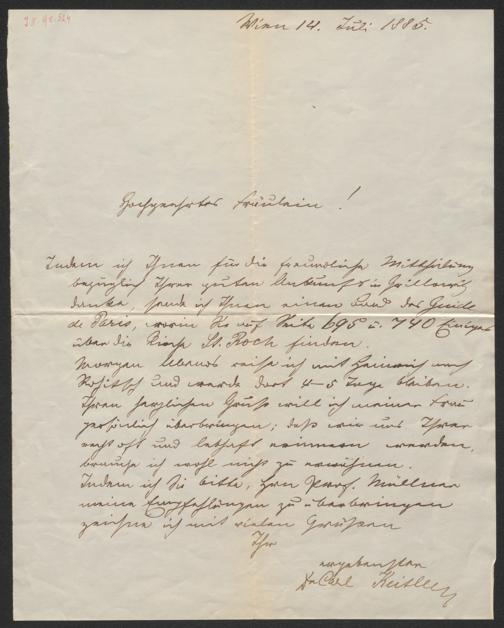 Wien 14. Juli 1885.
Hochgeehrtes Fräulein!
Indem ich Ihnen für die freundliche Mittheilung
bezüglich Ihrer guten Ankunft in
danke, sende ich Ihnen einen Band des Guide
de Paris, worin Sie auf Seite 695 u. 740 Einiges
über die Kirche St. Roch finden.
Morgen Abends reise ich mit Heinrich nach
Rohitsch und werde dort 4–5 Tage bleiben.
Ihren herzlichen Gruß will ich meiner Frau
persönlich überbringen; daß wir uns Ihrer
recht oft und lebhaft erinnern werden,
brauche ich wohl nicht zu erwähnen.
Indem ich Sie bitte, Hrn Prof. Müllner
meine Empfehlungen zu überbringen
zeichne ich mit vielen Grüßen
Ihr
ergebenster
Dr Carl